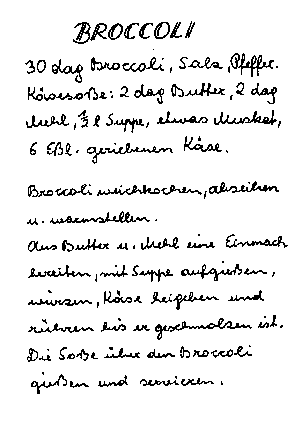 BROCCOLI
30 dag Broccoli, Salz, Pfeffer.
Käsesoße: 2 dag Butter, 2 dag
Mehl, l Suppe, etwas Muskat,
6 Eßl. geriebenen Käse.
Broccoli weichkochen, abseihen
u. warmstellen.
Aus Butter u. Mehl eine Einmach
bereiten, mit Suppe aufgießen,
würzen, Käse beigeben und
rühren bis er geschmolzen ist.
Die Soße über den Broccoli
gießen und servieren.